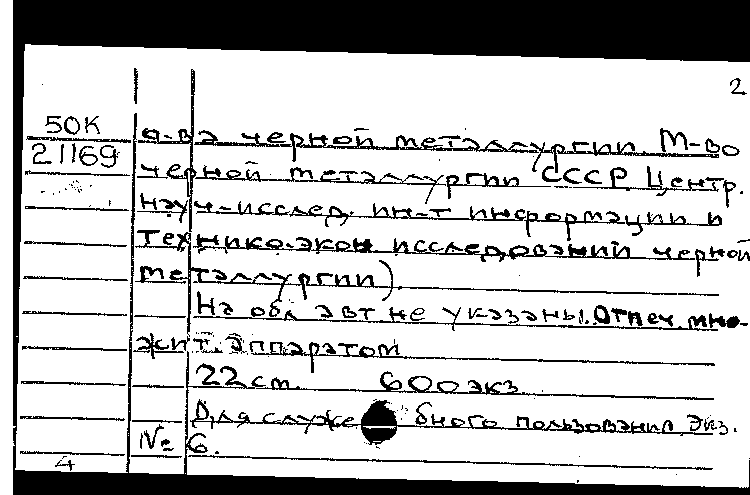 2
50К
21169
а-ва черной металлургии. М-во
черной металлургии СССР. Центр.
науч.-исслед. ин-т информации и
технико-экон. исследований черной
металлургии).
На обл. авт. не указаны. Отпеч. мно-
жит. аппаратом
22 см. 600 экз
Для служебного пользования. Экз.
№ 6.
4